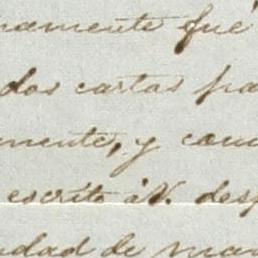 namente fué
dos cartas pa
mente, y com
escrito á V. desp
udad de man